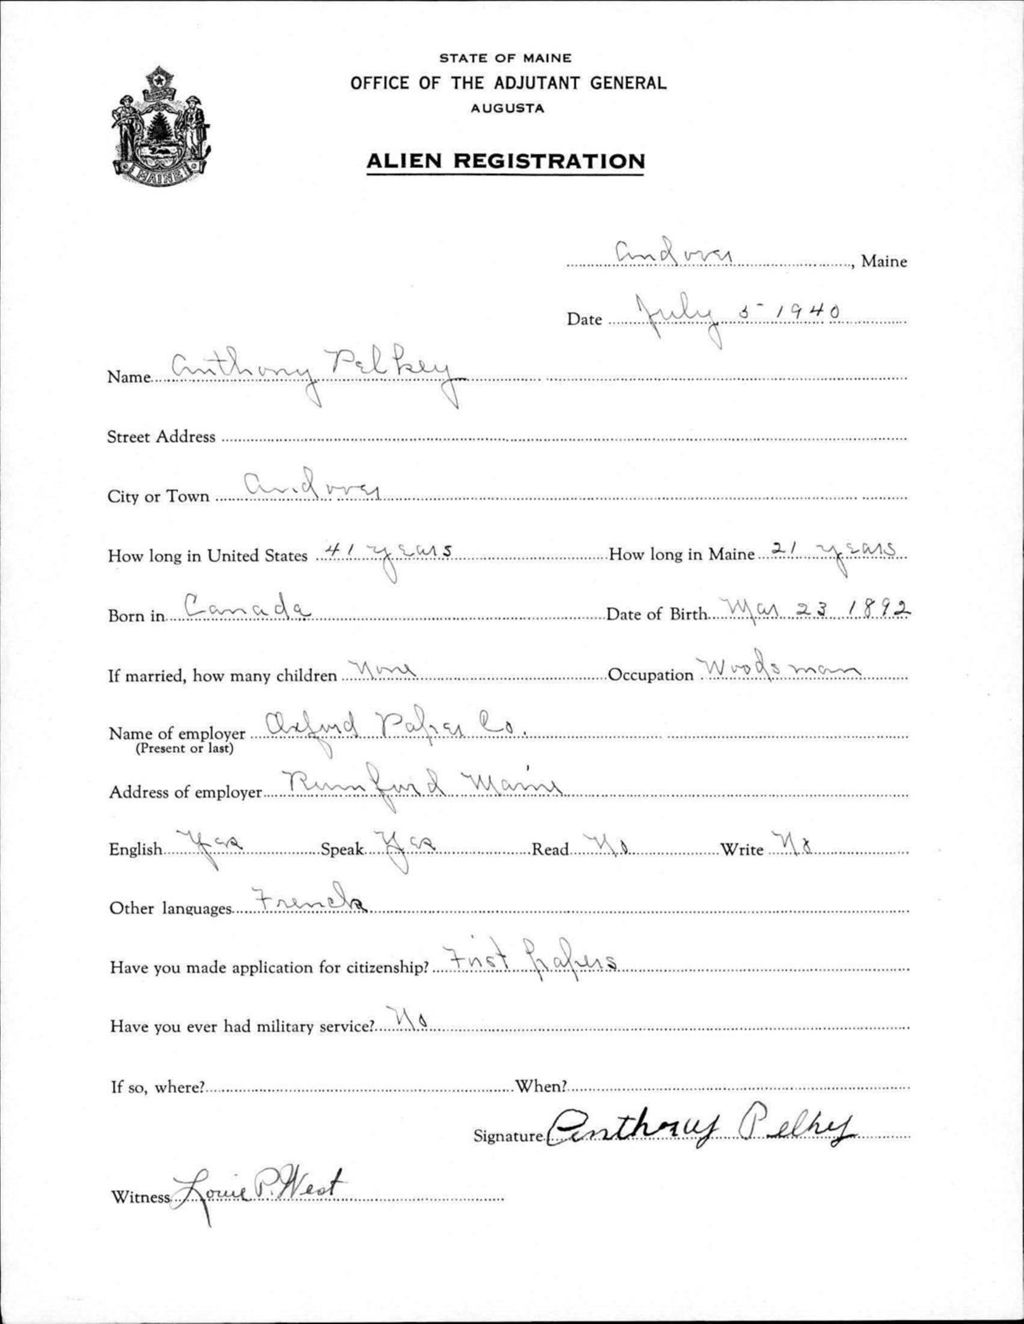 STATE OF MAINE
OFFICE OF THE ADJUTANT GENERAL
AUGUSTA
ALIEN REGISTRATION
MAINE
Andover, Maine
Date July 5 - 1940
Name Anthony Pelkey
Street Address
City or Town Andover
How long in United States 41 years How long in Maine 21 years
Born in Canada Date of Birth Mar 23 1892
If married, how many children None Occupation Woodsman
Name of employer Oxford Paper Co.
(Present or last)
Address of employer Rumford Maine
English Yes Speak Yes Read No Write No
Other languages French
Have you made application for citizenship? First papers
Have you ever had military service? No
If so, where? When?
Signature Anthony Pelkey
Witness Louie P. West